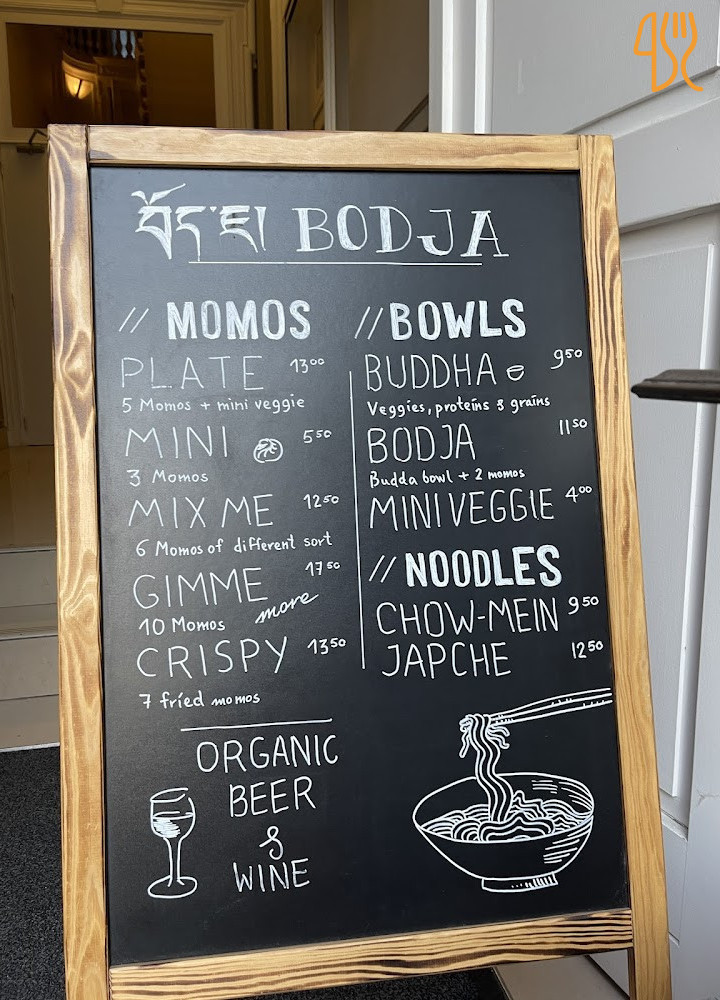 བོད་ཇ། BODJA
// MOMOS
PLATE 13⁰⁰
5 Momos + mini veggie
MINI 5⁵⁰
3 Momos
MIX ME 12⁵⁰
6 Momos of different sort
GIMME more 17⁵⁰
10 Momos
CRISPY 13⁵⁰
7 fried momos
ORGANIC
BEER
&
WINE
// BOWLS
BUDDHA 9⁵⁰
Veggies, proteins & grains
BODJA 11⁵⁰
Budda bowl + 2 momos
MINI VEGGIE 4⁰⁰
// NOODLES
CHOW-MEIN 9⁵⁰
JAPCHE 12⁵⁰